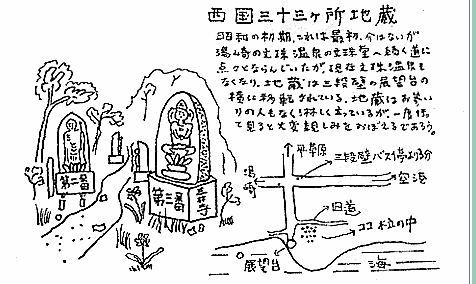 西国三十三ヶ所地蔵
昭和の初期、これは最初、今はないが
湯崎の文珠温泉の文珠堂へ続く道に
点々とならんでいたが、現在文珠温泉も
なくなり、地蔵は三段壁の展望台の
横に移転されている。地蔵はお参い
りの人もなく淋しく立っているが、一度行っ
て見ると大変親しみをおぼえるであろう。
平草原
三段壁バス停より5分
湯崎
空港
旧道
ココ 松の中
展望台
海
第一番
第二番